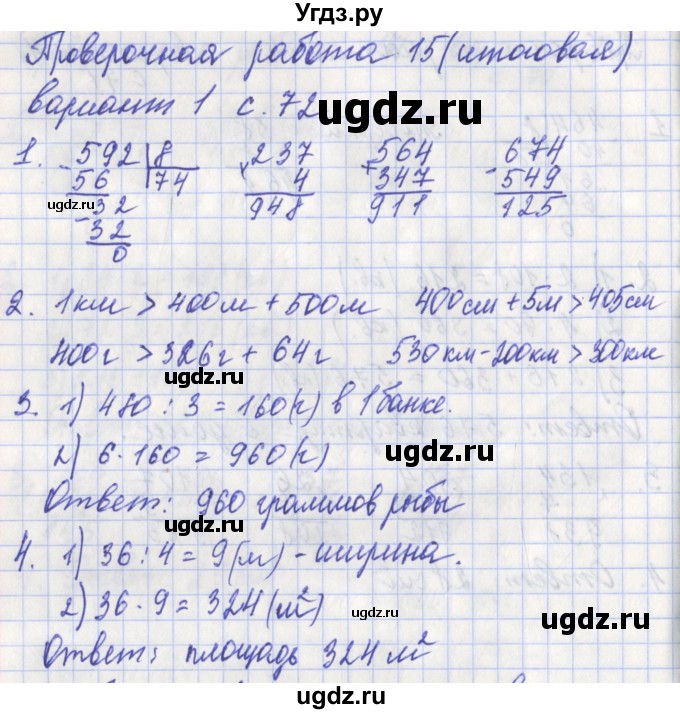 Угдз.ру
Проверочная работа 15 (итоговая)
вариант 1 с. 72
ugdz.ru
1. - 592 | 8    × 237    + 564    - 674
56    74    4    347    549
ugdz.ru - 32    948    911    125
32
0
ugdz.ru
2. 1 км > 400 м + 500 м    400 см + 5 м > 405 см
400 г > 326 г + 64 г    530 км - 200 км > 300 км
ugdz.ru
3. 1) 480 : 3 = 160 (г) в 1 банке.
2) 6 · 160 = 960 (г)
ugdz.ru
Ответ: 960 граммов рыбы
4. 1) 36 : 4 = 9 (м) - ширина.
2) 36 · 9 = 324 (м²)
ugdz.ru
ugdz.ru
Ответ: площадь 324 м²
ugdz.ru